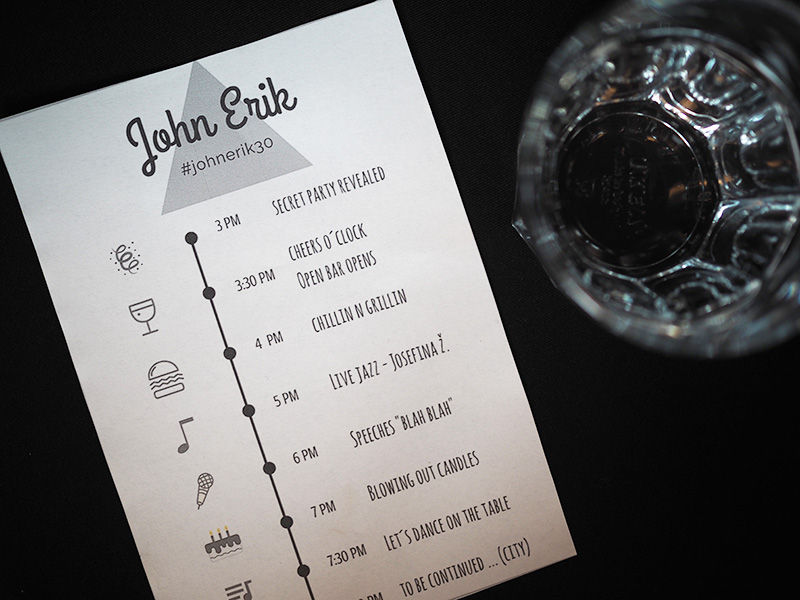 John Erik
#johnerik30
3 PM SECRET PARTY REVEALED
3:30 PM CHEERS O´CLOCK
OPEN BAR OPENS
4 PM CHILLIN N GRILLIN
5 PM LIVE JAZZ - JOSEFINA Ž.
6 PM SPEECHES "BLAH BLAH"
7 PM BLOWING OUT CANDLES
7:30 PM LET´S DANCE ON THE TABLE
PM TO BE CONTINUED ... (CITY)
IKEA